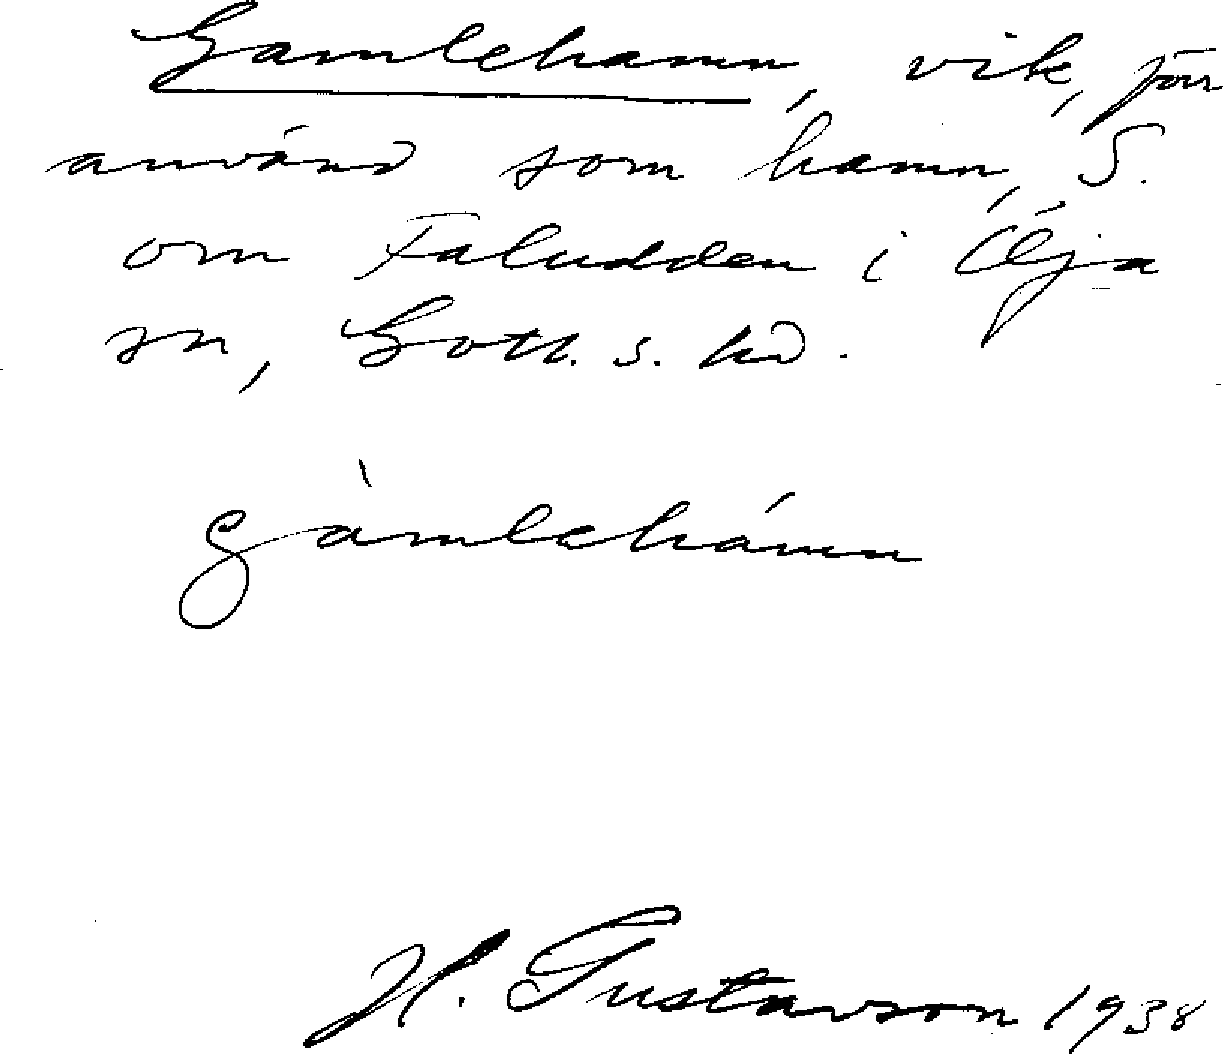 Gamlehamn, vik, förr
använd som hamn, S.
om Faludden i Öja
sn, Gotl. s. hd.
gàmlehámn
H. Gustavson 1938